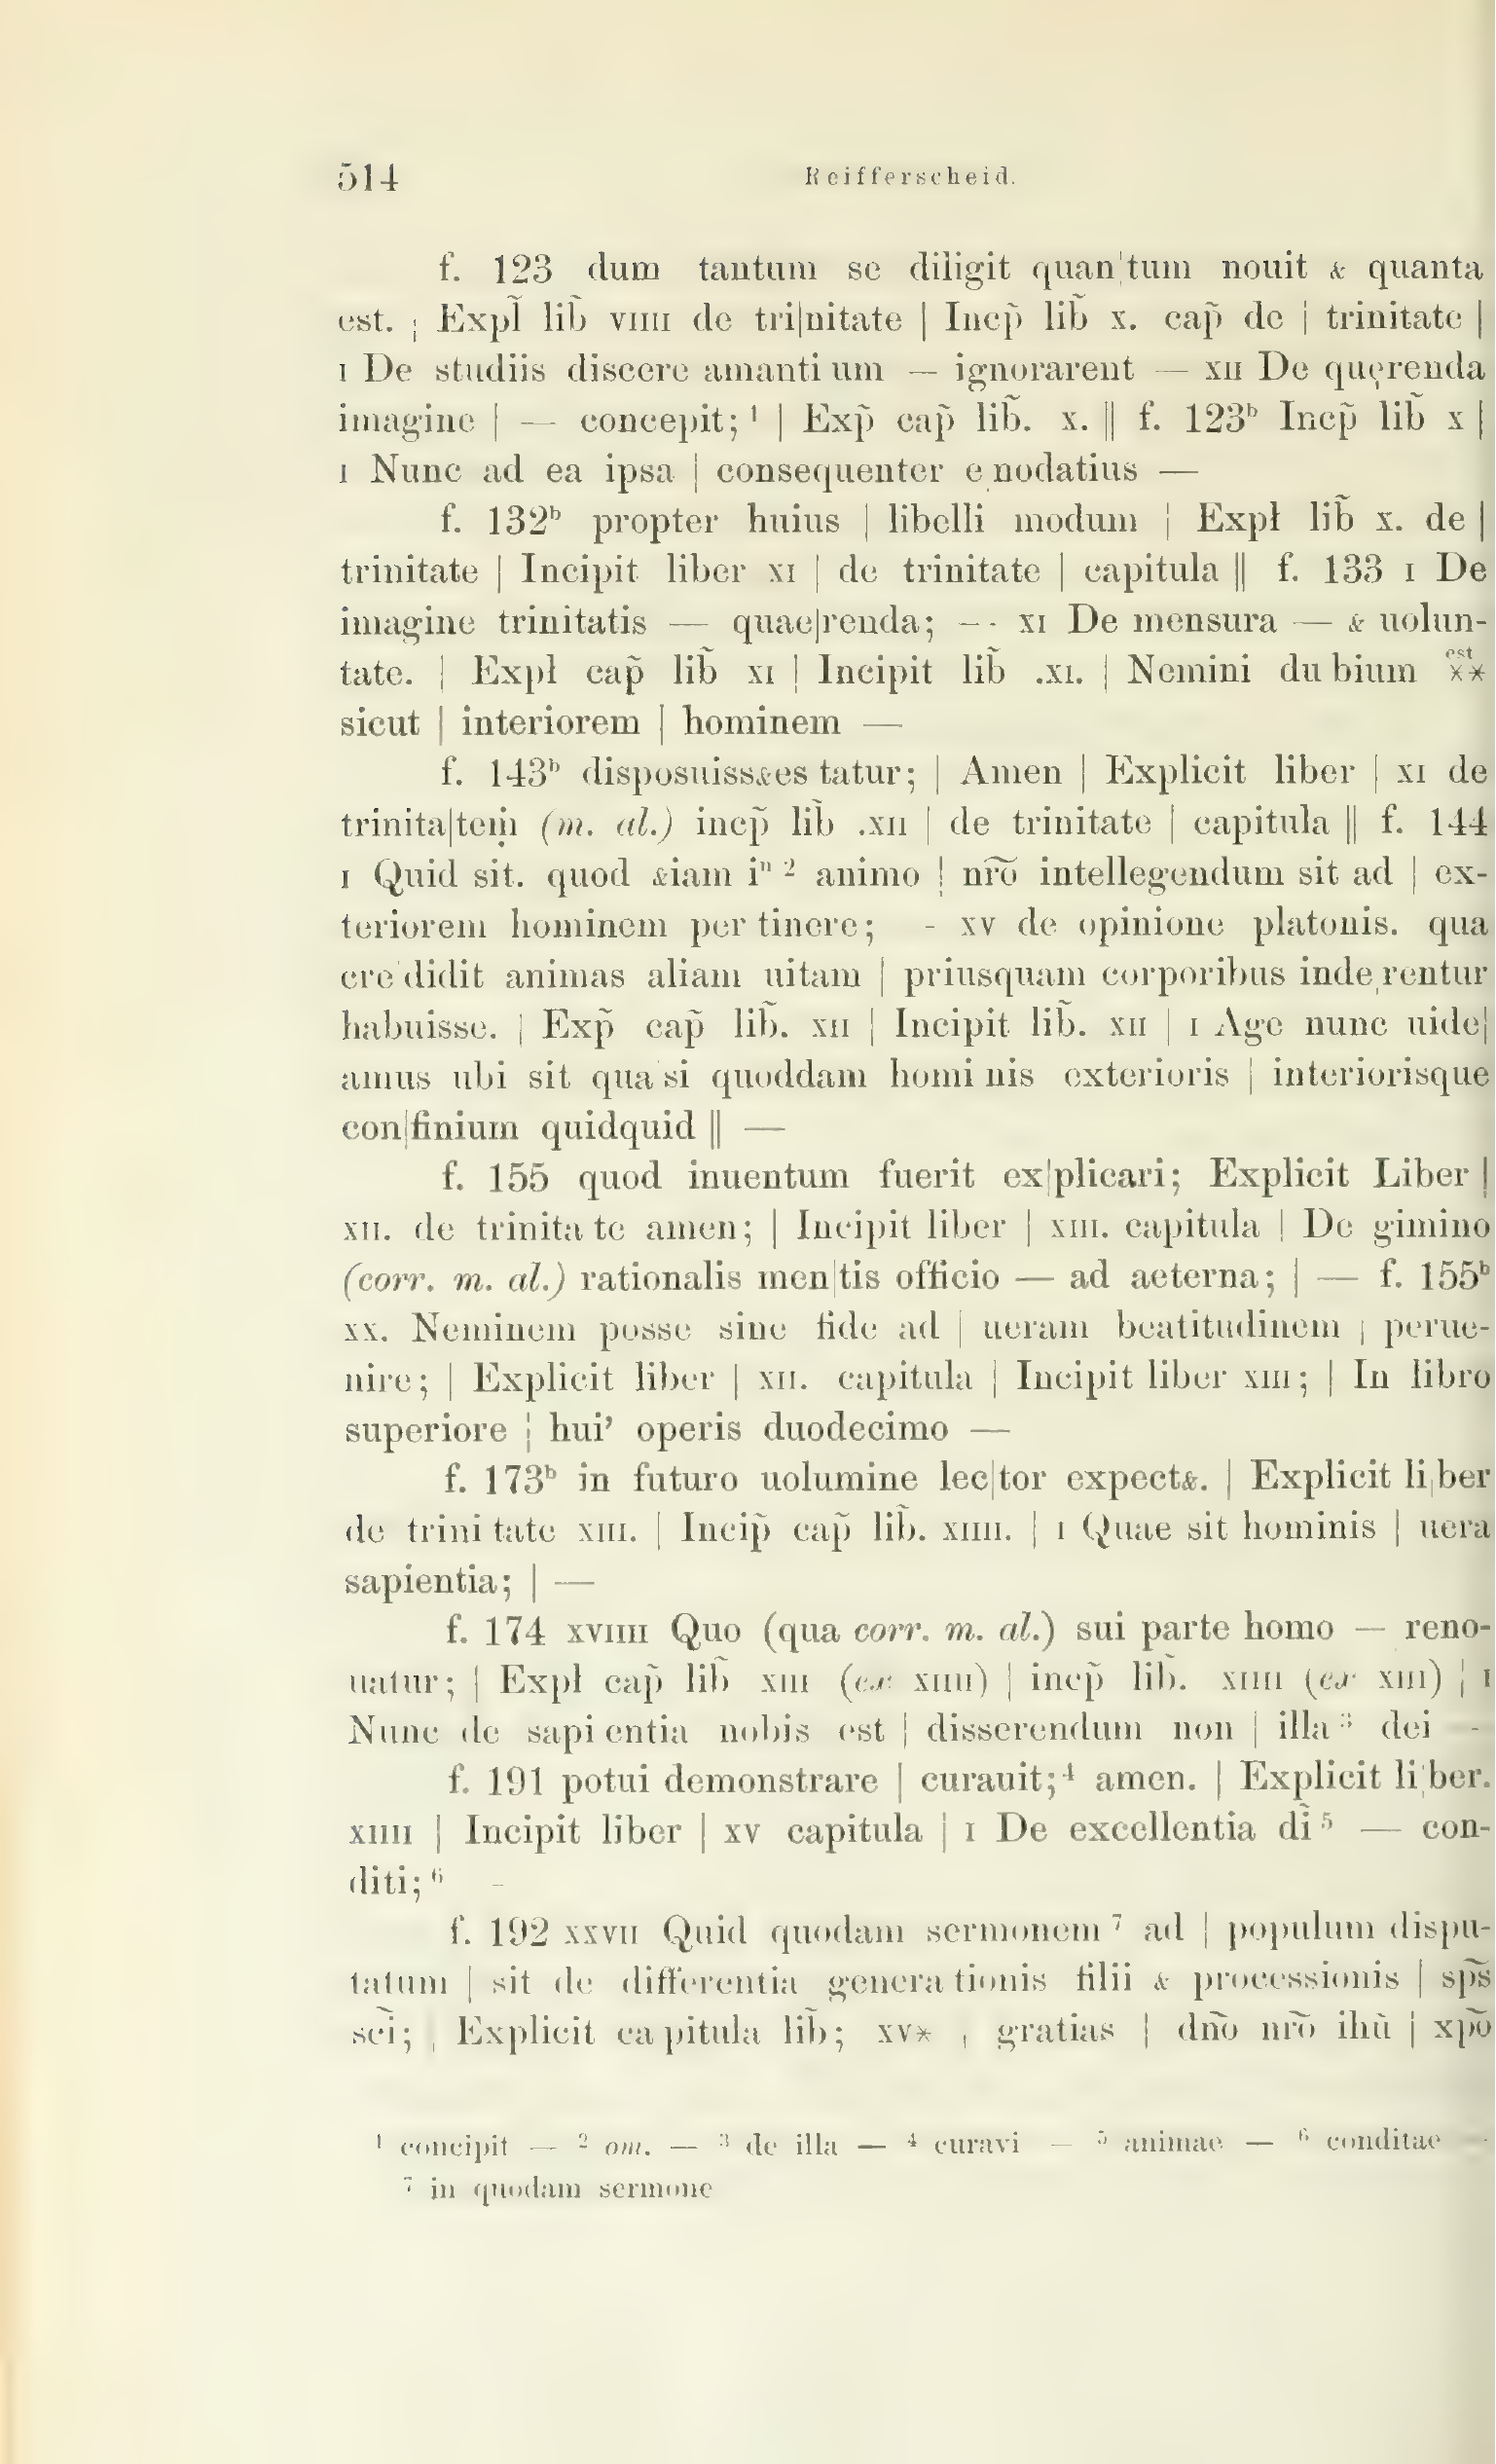 514 Reifferscheid.
f. 123 dum tantum se diligit quan|tum nouit & quanta
est. | Expl̃ lib̃ VIIII de tri|nitate | Incp̃ lib̃ X. cap̃ de | trinitate |
I De studiis discere amanti|um — ignorarent — XII De quęrenda
imagine | — concepit;¹ | Exp̃ cap̃ lib̃. X. || f. 123ᵇ Incp̃ lib̃ X |
I Nunc ad ea ipsa | consequenter e|nodatius —
f. 132ᵇ propter huius | libelli modum | Expł lib̃ X. de |
trinitate | Incipit liber XI | de trinitate | capitula || f. 133 I De
imagine trinitatis — quae|renda; — XI De mensura — & uolun-
tate. | Expł cap̃ lib̃ XI | Incipit lib̃ .XI. | Nemini du|bium est **
sicut | interiorem | hominem —
f. 143ᵇ disposuiss&es|tatur; | Amen | Explicit liber | XI de
trinita|teṃ̇ (m. al.) incp̃ lib̃ .XII | de trinitate | capitula || f. 144
I Quid sit. quod &iam iⁿ ² animo | nr̃õ intellegendum sit ad | ex-
teriorem hominem per|tinere; - XV de opinione platonis. qua
cre|didit animas aliam uitam | priusquam corporibus inde|rentur
habuisse. | Exp̃ cap̃ lib̃. XII | Incipit lib̃. XII | I Age nunc uide|
amus ubi sit qua|si quoddam homi|nis exterioris | interiorisque
con|finium quidquid || —
f. 155 quod inuentum fuerit ex|plicari; Explicit Liber |
XII. de trinita|te amen; | Incipit liber | XIII. capitula | De gimino
(corr. m. al.) rationalis men|tis officio — ad aeterna; | — f. 155ᵇ
XX. Neminem posse sine fide ad | ueram beatitudinem | perue-
nire; | Explicit liber | XII. capitula | Incipit liber XIII; | In libro
superiore | hui’ operis duodecimo —
f. 173ᵇ in futuro uolumine lec|tor expect&. | Explicit li|ber
de trini|tate XIII. | Incip̃ cap̃ lib̃. XIIII. | I Quae sit hominis | uera
sapientia; | —
f. 174 XVIIII Quo (qua corr. m. al.) sui parte homo — reno-
uatur; | Expł cap̃ lib̃ XIII (ex XIIII) | incp̃ lib̃. XIIII (ex XIII) | I
Nunc de sapi|entia nobis est | disserendum non | illa³ dei -
f. 191 potui demonstrare | curauit;⁴ amen. | Explicit li|ber.
XIIII | Incipit liber | XV capitula | I De excellentia dĩ⁵ — con-
diti;⁶ -
f. 192 XXVII Quid quodam sermonem⁷ ad | populum dispu-
tatum | sit de differentia genera|tionis filii & processionis | sp̃s̃
sc̃ĩ; | Explicit ca|pitula lib̃; XV* | gratias | dñõ nr̃õ ihũ | xp̃õ
¹ concipit — ² om. — ³ de illa — ⁴ curavi — ⁵ animae — ⁶ conditae -
⁷ in quodam sermone